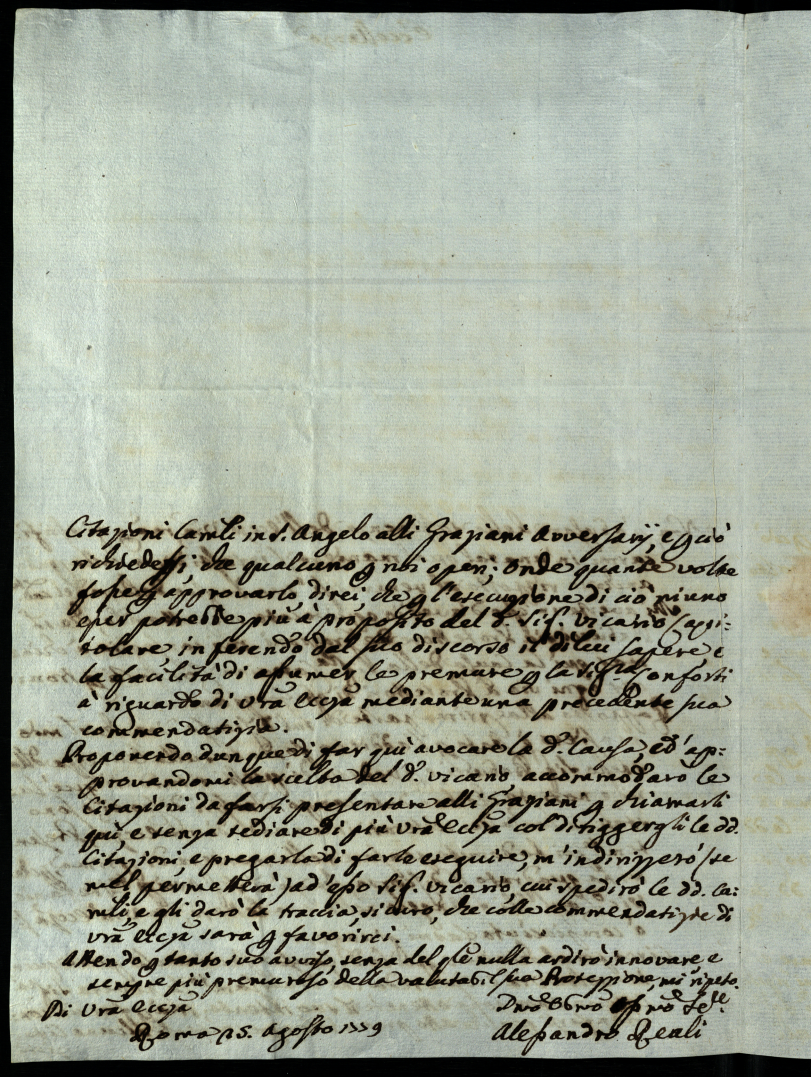 Citazioni Camli in S. Angelo alli Graziani Avversarij, e p ciò
richiedesi, che qualcuno p noi operi; onde quante volte
fosse p approvarlo, direi, che p l'esecuzione di ciò niuno
esser potrebbe più à proposito del d. Sig. Vicario Capi:
tolare inferendo dal suo discorso il di lui sapere e
la facilità di assumer le premure p la Sig.ra Conforti
à riguardo di Vrã Eccza mediante una precedente sua
commendatizia.
Proponendo dunque di far quì avocare la d. Causa, ed ap:
provandomi la scelta del d. Vicario accommodarò le
Citazioni da farsi presentare alli Graziani p chiamarli
quì, e senza tediare di più Vrã Eccza col diriggergli le dd.
Citazioni, e pregarla di farle eseguire, m'indirizzerò (se
mel permetterà) ad esso Sig. Vicario, cui spedirò le dd. Ca:
mli, e gli darò la traccia, sicuro, che colle commendatizie di
Vrã Eccza sarà p favorirci.
Attendo p tanto suo avviso, senza del qle nulla ardirò innovare e
sempre più premuroso della valutabil sua Protezzione, mi ripeto.
Di Vrã Eccza
Roma 25. Agosto 1779
Alessandro Reali